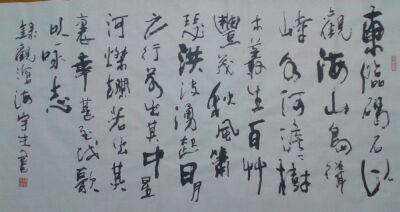 東臨碣石以
觀海山島竦
峙水何澹澹樹
木叢生百艸
豐茂秋風蕭
瑟洪波湧起日月
之行若出其中星
河燦爛若出其
裏幸甚至哉歌
以咏志
錄觀滄海 書